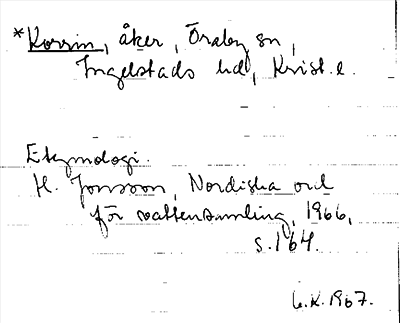 *Korrin, åker, Öraby sn,
Ingelstads hd, Krist. l.
Etymologi.
H. Jonsson, Nordiska ord
för vattensamling, 1966,
s. 164.
L.K. 1967.